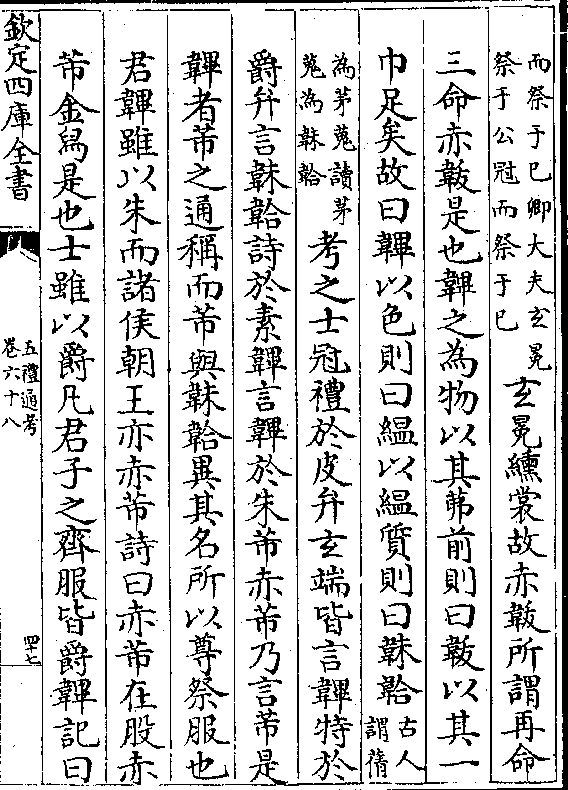 而祭于巳卿大夫玄冕
祭于公冠而祭于巳
玄冕纁裳故赤韍所謂再命
三命赤韍是也韠之為物以其茀前則曰韍以其一
巾足矣故曰韠以色則曰緼以緼質則曰韎韐
古人
謂蒨
為茅蒐讀茅
蒐為韎韐
考之士冠禮於皮弁玄端皆言韠特於
爵弁言韎韐詩於素韠言韠於朱芾赤芾乃言芾是
韠者芾之通稱而芾與韎韐異其名所以尊祭服也
君韠雖以朱而諸侯朝王亦赤芾詩曰赤芾在股赤
芾金舄是也士雖以爵凡君子之齊服皆爵韠記曰
欽定四庫全書
五禮通考
卷六十八
四十七